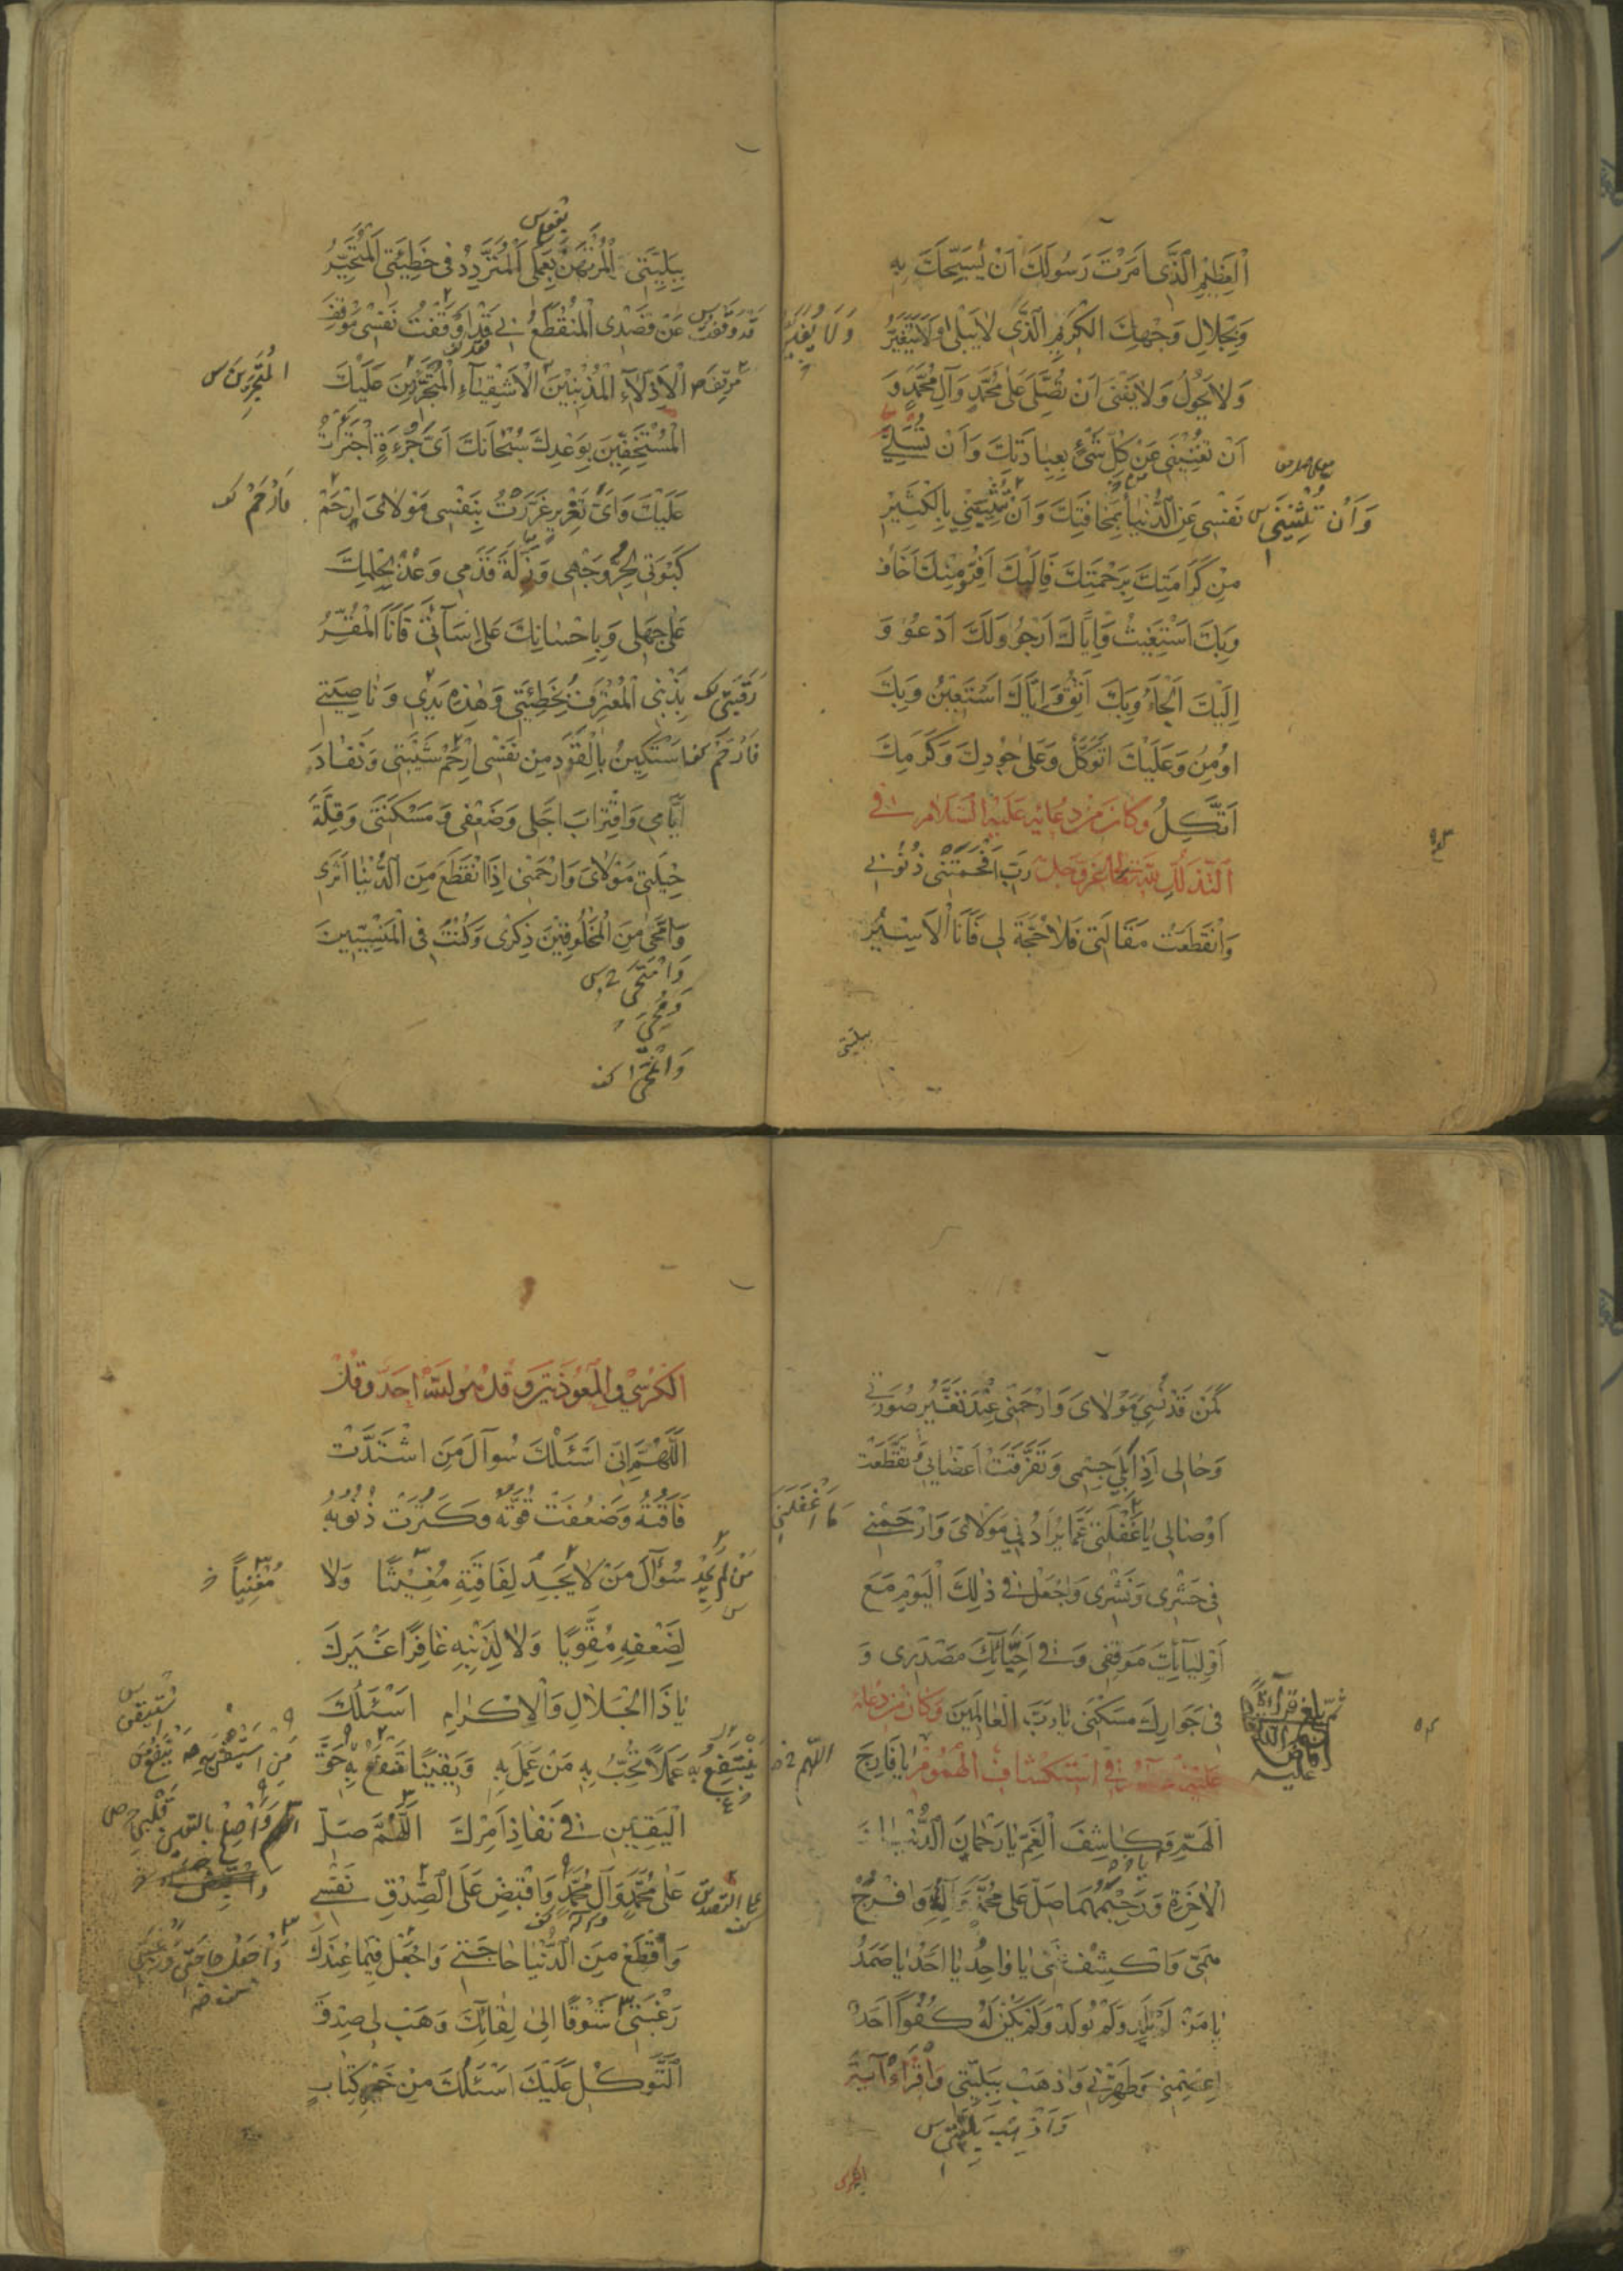 الْعَظِيمِ الَّذِى اَمَرْتَ رَسُولَكَ اَنْ يُسَبِّحَكَ بِهِ
وَبِجَلالِ وَجْهِكَ الْكَرِيمِ الَّذِى لايَبْلىٰ وَلايَتَغَيَّرُ
وَلايَحُولُ وَلايَفْنىٰ اَنْ تُصَلِّىَ عَلىٰ مُحَمَّدٍ وَآلِ مُحَمَّدٍ وَ
اَنْ تُغْنِيَنِى عَنْ كُلِّ شَىْءٍ بِعِبادَتِكَ وَاَنْ تُسَلِّىَ
نَفْسِى عَنِ الدُّنْيا بِمَخافَتِكَ وَاَنْ تُثْنِيَنِى بِالْكَثِيرِ
وَاَنْ تُثْنِيَنِى س
مِنْ كَرامَتِكَ بِرَحْمَتِكَ فَاِلَيْكَ اَفِرُّ وَمِنْكَ اَخافُ
وَبِكَ اَسْتَغِيثُ وَاِيّاكَ اَرْجُو وَلَكَ اَدْعُو وَ
اِلَيْكَ اَلْجَأُ وَبِكَ اَثِقُ وَاِيّاكَ اَسْتَعِينُ وَبِكَ
اُومِنُ وَعَلَيْكَ اَتَوَكَّلُ وَعَلىٰ جُودِكَ وَكَرَمِكَ
اَتَّكِلُ وَكانَ مِنْ دُعائِهِ عَلَيْهِ السَّلامُ فِى
التَّذَلُّلِ لِلّٰهِ عَزَّ وَجَلَّ رَبِّ اَفْحَمَتْنِى ذُنُوبِى
وَانْقَطَعَتْ مَقالَتِى فَلاحُجَّةَ لِى فَاَنَا الْاَسِيرُ
ببليتى
بِبَلِيَّتِى الْمُرْتَهَنُ بِعَمَلِى الْمُتَرَدِّدُ فِى خَطِيئَتِى الْمُتَحَيِّرُ
عَنْ قَصْدِى الْمُنْقَطَعُ بِى قَدْ اَوْقَفْتُ نَفْسِى مَوْقِفَ
الْاَذِلّاءِ الْمُذْنِبِينَ الْاَشْقِياءِ الْمُتَجَرِّينَ عَلَيْكَ
الْمُسْتَخِفِّينَ بِوَعْدِكَ سُبْحانَكَ اَىَّ جُرْءَةٍ اجْتَرَأْتُ
عَلَيْكَ وَاَىَّ تَغْرِيرٍ غَرَّرْتُ بِنَفْسِى مَوْلاىَ ارْحَمْ
فَارْحَمْ كف
كَبْوَتِى لِحُرِّ وَجْهِى وَزَلَّةَ قَدَمِى وَعُدْ بِحِلْمِكَ
عَلىٰ جَهْلِى وَبِاِحْسانِكَ عَلىٰ اِساءَتِى فَاَنَا الْمُقِرُّ
بِذَنْبِى الْمُعْتَرِفُ بِخَطِيئَتِى وَهٰذِهِ يَدِى وَناصِيَتِى
اَسْتَكِينُ بِالْقَوَدِ مِنْ نَفْسِى ارْحَمْ شَيْبَتِى وَنَفادَ
اَيّامِى وَاقْتِرابَ اَجَلِى وَضَعْفِى وَمَسْكَنَتِى وَقِلَّةَ
حِيلَتِى مَوْلاىَ وَارْحَمْنِى اِذَا انْقَطَعَ مِنَ الدُّنْيا اَثَرِى
وَامَّحىٰ مِنَ الْمَخْلُوقِينَ ذِكْرِى وَكُنْتُ فِى الْمَنْسِيِّينَ
وَامْتَحىٰ
وَمُحِىَ
كَمَنْ قَدْ نُسِىَ مَوْلاىَ وَارْحَمْنِى عِنْدَ تَغَيُّرِ صُورَتِى
وَحالِى اِذا بَلِىَ جِسْمِى وَتَفَرَّقَتْ اَعْضائِى وَتَقَطَّعَتْ
اَوْصالِى ياغَفْلَتِى عَمّا يُرادُ بِى مَوْلاىَ وَارْحَمْنِى
فِى حَشْرِى وَنَشْرِى وَاجْعَلْ فِى ذٰلِكَ الْيَوْمِ مَعَ
اَوْلِيائِكَ مَوْقِفِى وَفِى اَحِبّائِكَ مَصْدَرِى وَ
فِى جِوارِكَ مَسْكَنِى يارَبَّ الْعالَمِينَ وَكانَ مِنْ دُعائِهِ
فِى اسْتِكْشافِ الْهُمُومِ يافارِجَ
الْهَمِّ وَكاشِفَ الْغَمِّ يارَحْمانَ الدُّنْيا
الْاٰخِرَةِ وَرَحِيمَهُما صَلِّ عَلىٰ مُحَمَّدٍ وَافْرُجْ
هَمِّى وَاكْشِفْ غَمِّى ياواحِدُ يااَحَدُ ياصَمَدُ
يامَنْ لَمْ يَلِدْ وَلَمْ يُولَدْ وَلَمْ يَكُنْ لَهُ كُفُوًا اَحَدٌ
اعْصِمْنِى وَطَهِّرْنِى وَاذْهَبْ بِبَلِيَّتِى وَاقْرَأْ آيَةَ
الكرسى
الْكُرْسِىِّ وَالْمُعَوِّذَتَيْنِ وَقُلْ هُوَ اللّٰهُ اَحَدٌ وَقُلْ
اَللّٰهُمَّ اِنِّى اَسْئَلُكَ سُؤالَ مَنِ اشْتَدَّتْ
فاقَتُهُ وَضَعُفَتْ قُوَّتُهُ وَكَثُرَتْ ذُنُوبُهُ
سُؤالَ مَنْ لايَجِدُ لِفاقَتِهِ مُغِيثًا وَلا
لِضَعْفِهِ مُقَوِّيًا وَلا لِذَنْبِهِ غافِرًا غَيْرَكَ
ياذَا الْجَلالِ وَالْاِكْرامِ اَسْئَلُكَ
عَمَلًا تُحِبُّ بِهِ مَنْ عَمِلَ بِهِ وَيَقِينًا تَنْفَعُ بِهِ حَقَّ
الْيَقِينِ فِى نَفاذِ اَمْرِكَ اَللّٰهُمَّ صَلِّ
عَلىٰ مُحَمَّدٍ وَآلِ مُحَمَّدٍ وَاقْبِضْ عَلَى الصِّدْقِ نَفْسِى
وَاقْطَعْ مِنَ الدُّنْيا حاجَتِى وَاجْعَلْ فِيما عِنْدَكَ
رَغْبَتِى شَوْقًا اِلىٰ لِقائِكَ وَهَبْ لِى صِدْقَ
التَّوَكُّلِ عَلَيْكَ اَسْئَلُكَ مِنْ خَيْرِ كِتابٍ